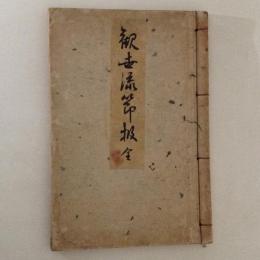 観世流節扱 全